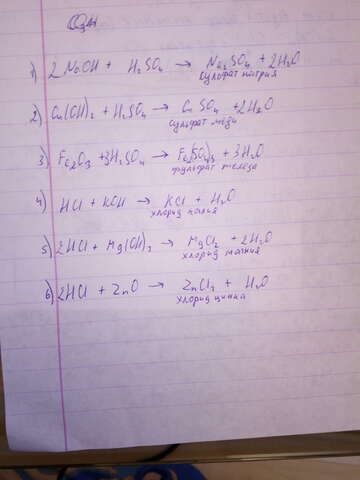 1) 2NaOH + H₂SO₄ → Na₂SO₄ + 2H₂O
сульфат натрия
2) Cu(OH)₂ + H₂SO₄ → CuSO₄ + 2H₂O
сульфат меди
3) Fe₂O₃ + 3H₂SO₄ → Fe₂(SO₄)₃ + 3H₂O
сульфат железа
4) HCl + KOH → KCl + H₂O
хлорид калия
5) 2HCl + Mg(OH)₂ → MgCl₂ + 2H₂O
хлорид магния
6) 2HCl + ZnO → ZnCl₂ + H₂O
хлорид цинка